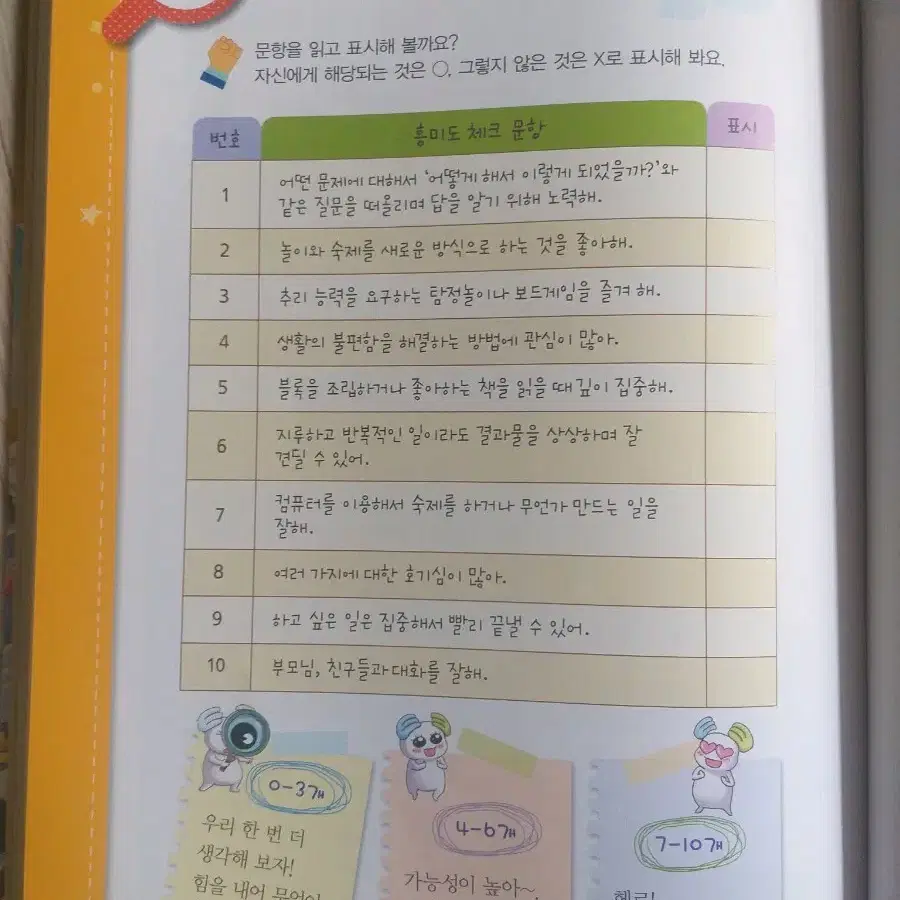 문항을 읽고 표시해 볼까요?
자신에게 해당되는 것은 ○, 그렇지 않은 것은 X로 표시해 봐요.
번호 흥미도 체크 문항 표시
1 어떤 문제에 대해서 '어떻게 해서 이렇게 되었을까?'와
같은 질문을 떠올리며 답을 알기 위해 노력해.
2 놀이와 숙제를 새로운 방식으로 하는 것을 좋아해.
3 추리 능력을 요구하는 탐정놀이나 보드게임을 즐겨 해.
4 생활의 불편함을 해결하는 방법에 관심이 많아.
5 블록을 조립하거나 좋아하는 책을 읽을 때 깊이 집중해.
6 지루하고 반복적인 일이라도 결과물을 상상하며 잘
견딜 수 있어.
7 컴퓨터를 이용해서 숙제를 하거나 무언가 만드는 일을
잘해.
8 여러 가지에 대한 호기심이 많아.
9 하고 싶은 일은 집중해서 빨리 끝낼 수 있어.
10 부모님, 친구들과 대화를 잘해.
0-3개
우리 한 번 더
생각해 보자!
힘을 내어
4-6개
가능성이 높아~
7-10개